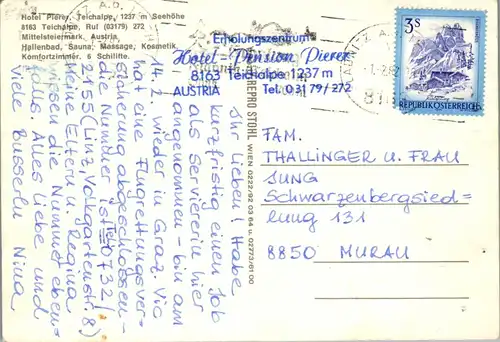 Hotel Pierer, Teichalpe, 1237 m Seehöhe
8163 Teichalpe, Ruf (03179) 272
Mittelsteiermark, Austria,
Hallenbad, Sauna, Massage, Kosmetik,
Komfortzimmer. 6 Schilifte.
Erholungszentrum
Hotel-Pension Pierer
8163 Teichalpe 1237 m
AUSTRIA Tel. 03179/272
3 S
REPUBLIK ÖSTERREICH
Ihr Lieben! Habe
kurzfristig einen Job
als Serviererin hier
angenommen - bin am
14.2. wieder in Graz. Vic
hat eine Flugrettungsver-
sicherung abgeschlossen -
die Nummer ist 0732/
2155 (Linz, Volksgartenstr. 8)
Meine Eltern u. Regina
wissen die Nummer eben-
falls. Alles Liebe und
viele Busserln Nina
REPRO STÖHL WIEN 0222/92 03 64 u. 02773/61 00
FAM.
THALLINGER U. FRAU
JUNG
Schwarzenbergsied=
lung 131
8850 MURAU